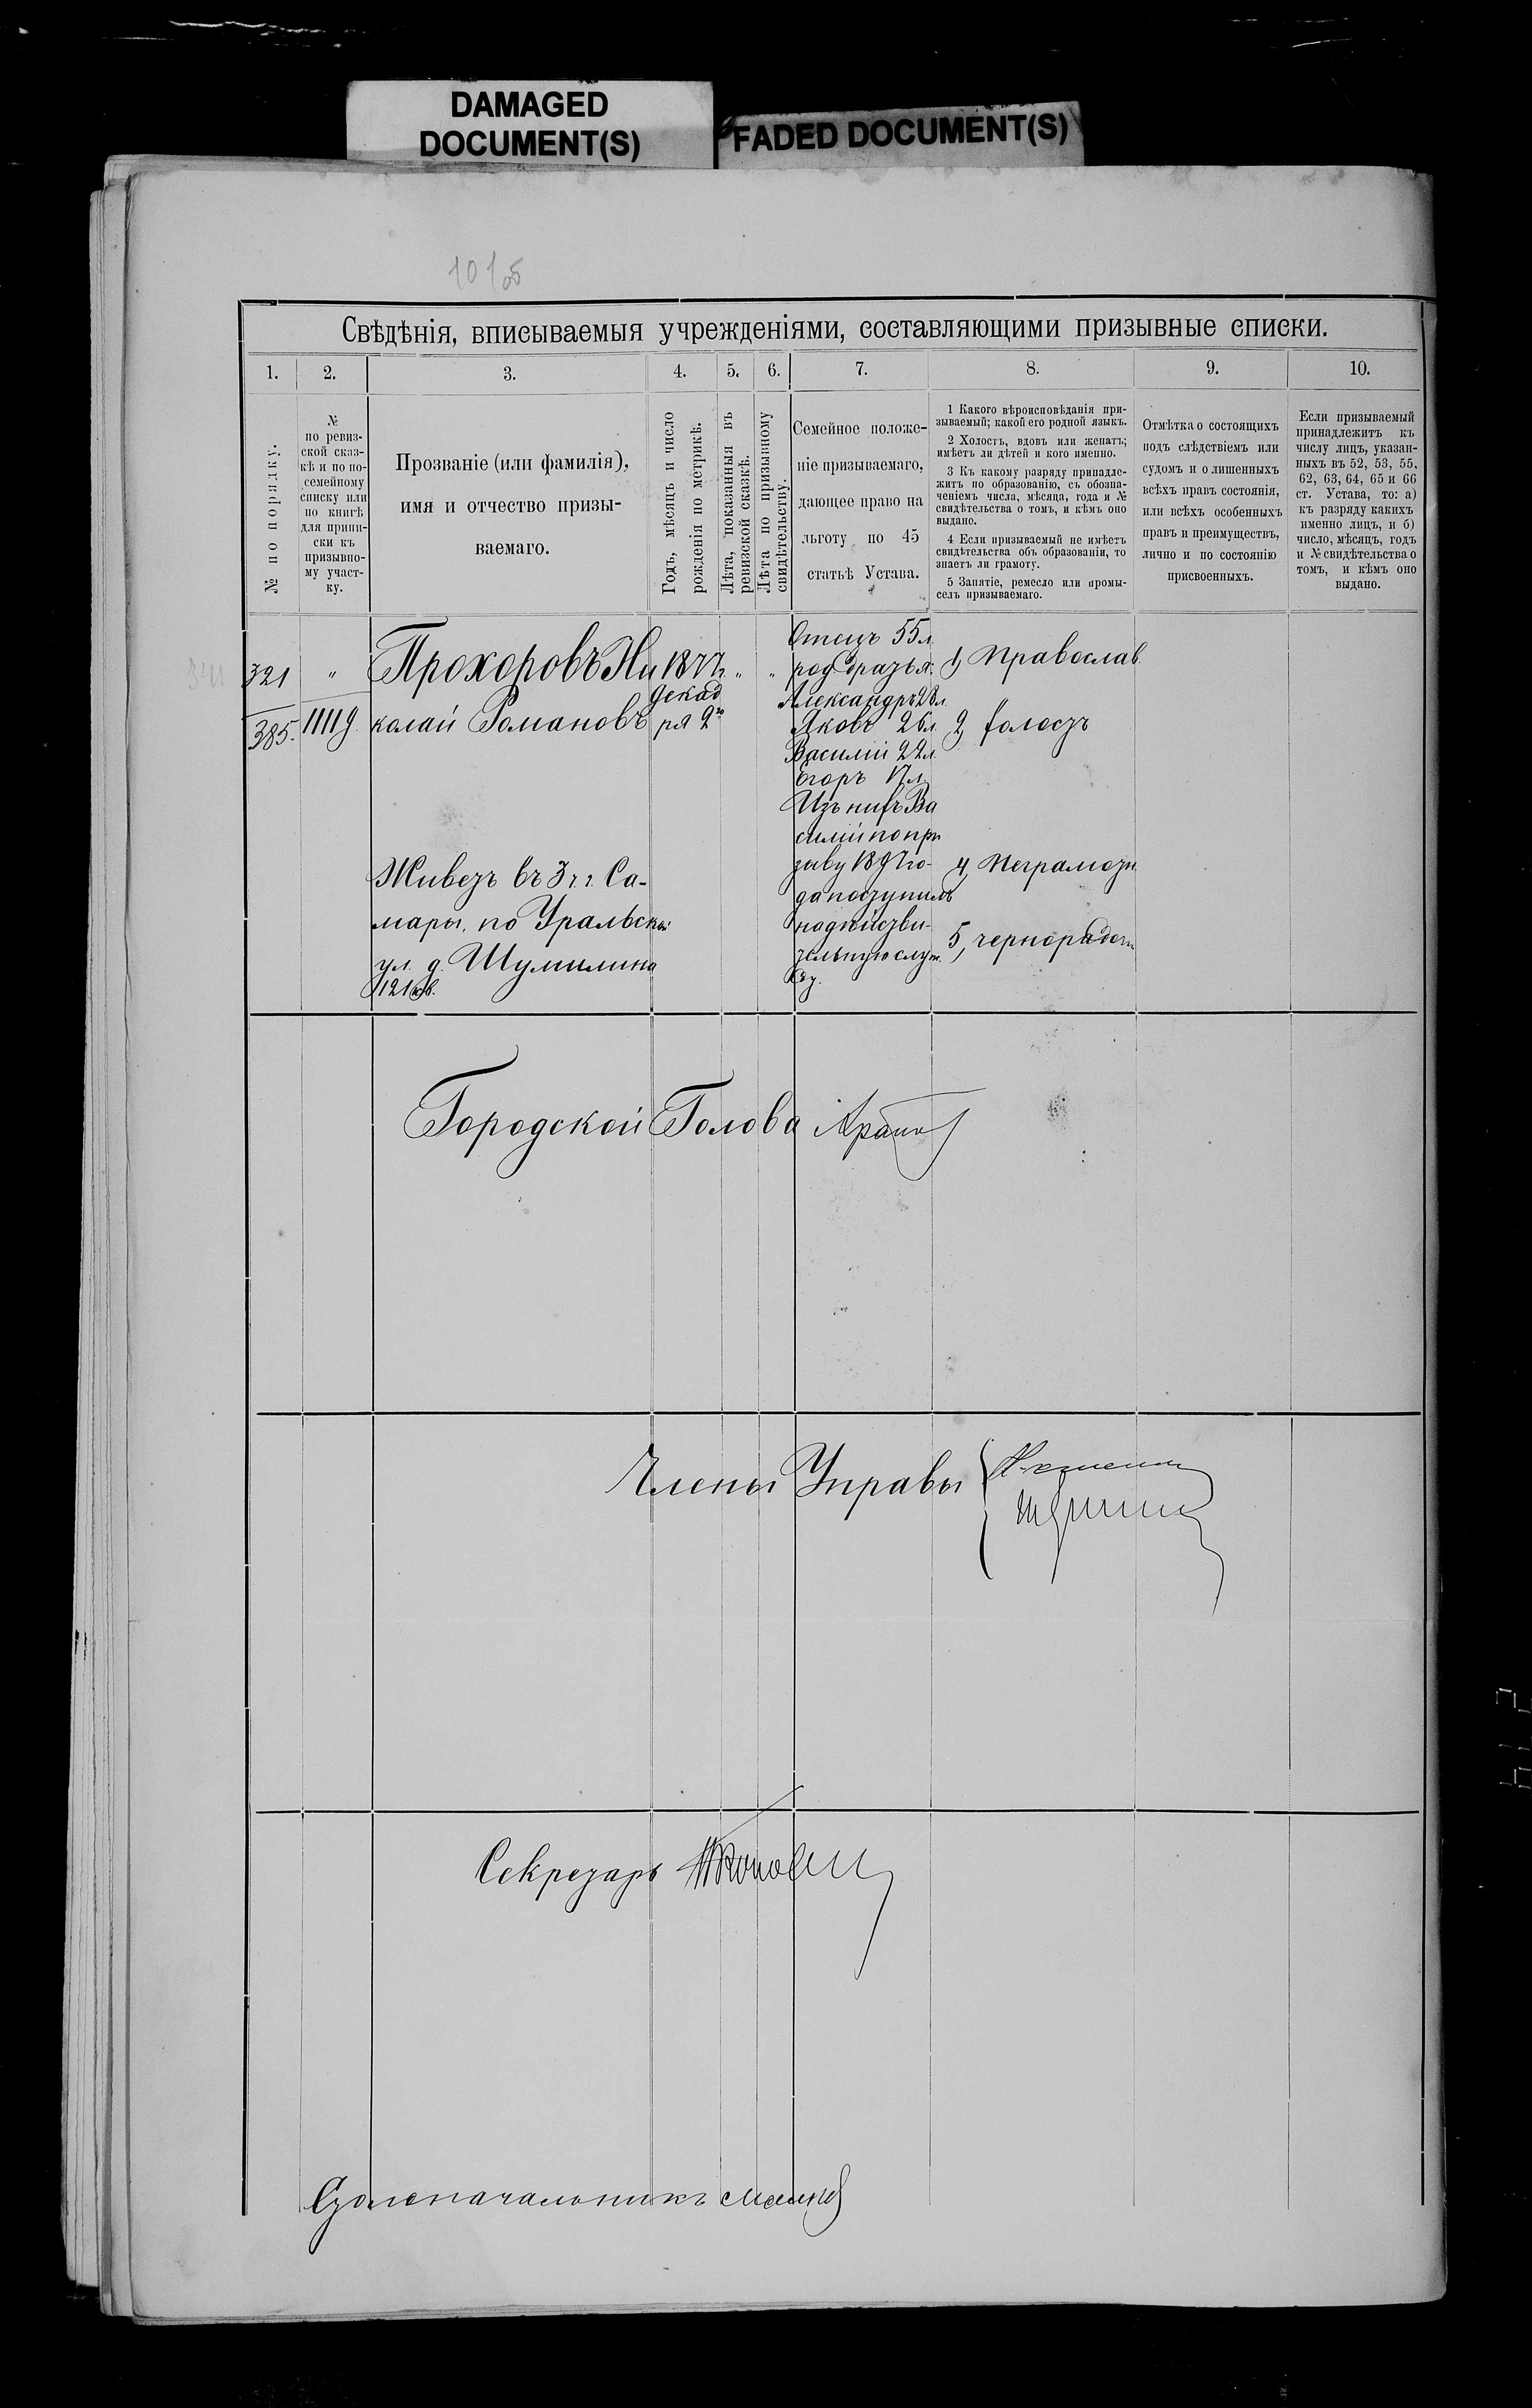 DAMAGED
DOCUMENT(S)
FADED DOCUMENT(S)
Свѣдѣнія, вписываемыя учрежденіями, составляющими призывные списки.
1.
2.
3.
4.
5.
6.
7.
8.
9.
10.
№ по порядку.
№
по ревиз-
ской сказ-
кѣ и по по-
семейному
списку или
по книгѣ
для припи-
ски къ
призывно-
му участ-
ку.
Прозваніе (или фамилія),
имя и отчество призы-
ваемаго.
Годъ, мѣсяцъ и число
рожденія по метрикѣ.
Лѣта, показанныя въ
ревизской сказкѣ.
Лѣта по призывному
свидѣтельству.
Семейное положе-
ніе призываемаго,
дающее право на
льготу по 45
статьѣ Устава.
1 Какого вѣроисповѣданія при-
зываемый; какой его родной языкъ.
2 Холостъ, вдовъ или женатъ;
имѣетъ ли дѣтей и кого именно.
3 Къ какому разряду принадле-
житъ по образованію, съ обозна-
ченіемъ числа, мѣсяца, года и №
свидѣтельства о томъ, и кѣмъ оно
выдано.
4 Если призываемый не имѣетъ
свидѣтельства объ образованіи, то
знаетъ ли грамоту.
5 Занятіе, ремесло или промы-
селъ призываемаго.
Отмѣтка о состоящихъ
подъ слѣдствіемъ или
судомъ и о лишенныхъ
всѣхъ правъ состоянія,
или всѣхъ особенныхъ
правъ и преимуществъ,
лично и по состоянію
присвоенныхъ.
Если призываемый
принадлежитъ къ
числу лицъ, указан-
ныхъ въ 52, 53, 55,
62, 63, 64, 65 и 66
ст. Устава, то: а)
къ разряду какихъ
именно лицъ, и б)
число, мѣсяцъ, годъ
и № свидѣтельства о
томъ, и кѣмъ оно
выдано.
321
385.
"
Прохоровъ Ни
колай Романовъ
Живетъ въ 3 ч. г. Са-
мары, по Уральской
ул. д. Шумилина
121 кв.
1877 г.
декаб
ря 2го
"
"
Отецъ 55 л.
род. братья:
Александръ 28 л.
Яковъ 26 л.
Василій 22 л.
Егоръ 17 л.
Изъ нихъ Ва
силій по при
зыву 1897 го-
да поступилъ
на дѣйстви-
тельную служ.
бу.
1, Православ.
2, холостъ
4, Неграмотн.
5, чернорабоч.
Городской Голова
Члены Управы
Секретарь
Столоначальникъ